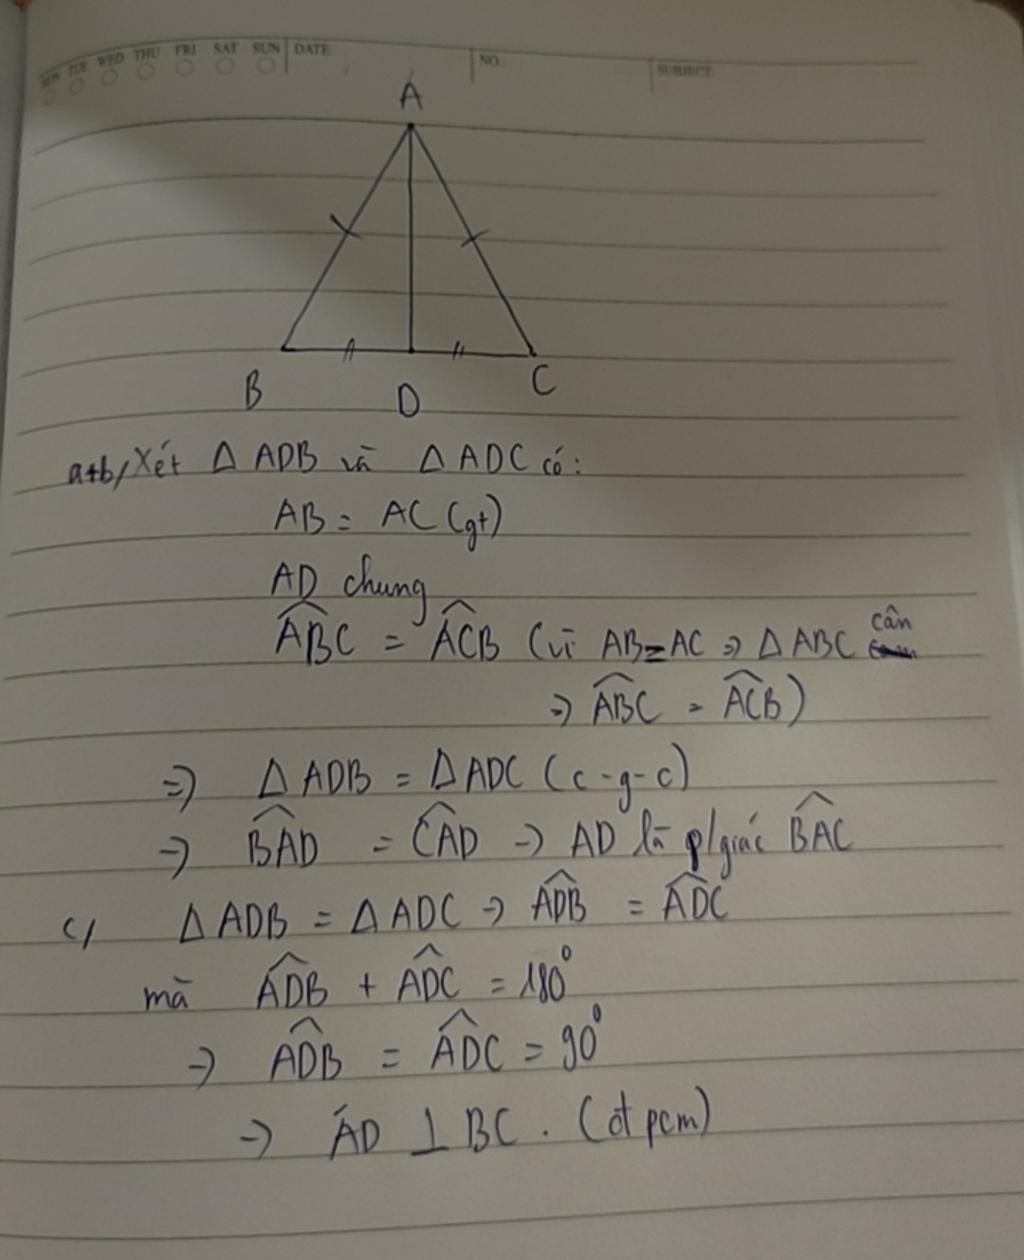 MON TUE WED THU FRI SAT SUN DATE: NO.: SUBJECT:
A
B D C
a+b/ Xét Δ ADB và Δ ADC có:
AB = AC (gt)
AD chung
\widehat{ABC} = \widehat{ACB} (vì AB = AC => Δ ABC cân
=> \widehat{ABC} = \widehat{ACB})
=> Δ ADB = Δ ADC (c-g-c)
=> \widehat{BAD} = \widehat{CAD} -> AD là p/giác \widehat{BAC}
c/ Δ ADB = Δ ADC -> \widehat{ADB} = \widehat{ADC}
mà \widehat{ADB} + \widehat{ADC} = 180°
-> \widehat{ADB} = \widehat{ADC} = 90°
-> AD ⊥ BC. (đpcm)